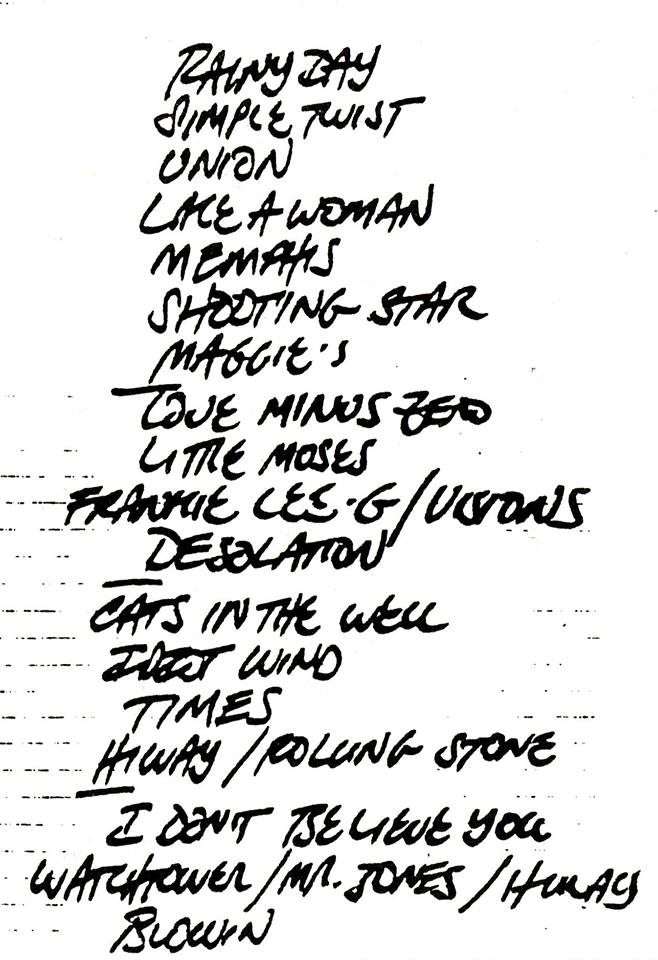 RAINY DAY
SIMPLE TWIST
UNION
LIKE A WOMAN
MEMPHIS
SHOOTING STAR
MAGGIE'S
LOVE MINUS ZERO
LITTLE MOSES
FRANKIE LEE-G/VISIONS
DESOLATION
CATS IN THE WELL
IDIOT WIND
TIMES
HIWAY/ROLLING STONE
I DON'T BELIEVE YOU
WATCHTOWER/MR. JONES/HIWAY
BLOWIN